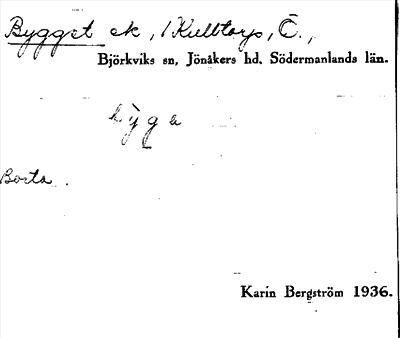 Bygget ek, / Kulltorp, Ö.,
Björkviks sn, Jönåkers hd. Södermanlands län.
bỳga
Borta.
Karin Bergström 1936.